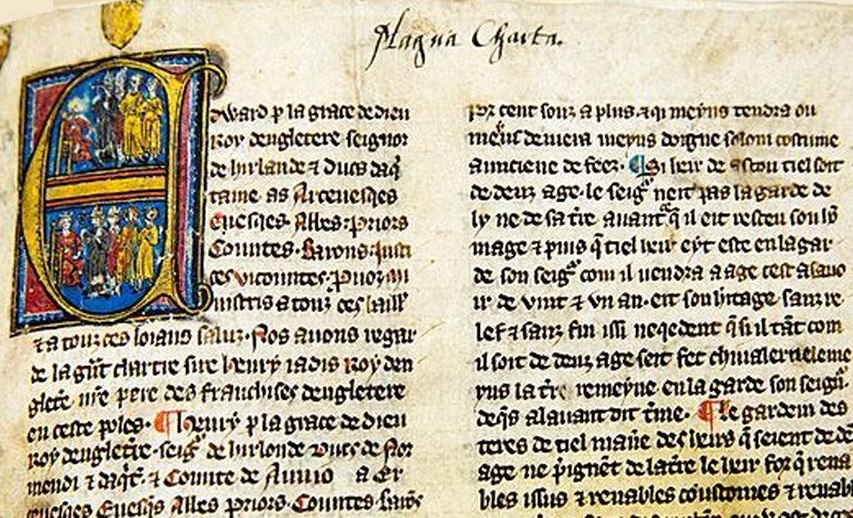 Magna Charta.
Edward p la grace de dieu
Roy dengletere seignor
de hirlande ⁊ Ducs daq̃
taine as Arceuesqes
Euesqes. Abbes. Priors
Countes. Barons. Justi
ces vicountes. Preuoz mi
nistris a touz ces baill'
⁊ a touz ces loiaus saluz. Nos auons regar
de la gñt chartre sire henry iadis Roy den
gleẽ nr̃e pere des franchises dengletere
en ceste . ¶ Henry p la grace de dieu
Roy dengletr̃e. seigr̃ de hirlonde Ducs de Nor
mendi ⁊ daq̃t. ⁊ Comite de a Er
ceuesqes Euesq̃s Abbes Priors. Countes
por cent souz a plus. ⁊ qi meyns tendra ou
meus deuiera meyns doigne solom costume
aunciene de feez. ¶ Si heir de ascou tiel soit
de denz age. le seigr̃ neit pas la garde de
ly ne de sa tr̃e auant q̃ il eit resceu soun
mage ⁊ puis q̃ tiel heir eyt este en la gar
de son seigr̃ com il uendra a age cest a sauo
ir de vint ⁊ vn an. eit son hitage sanz re
lef ⁊ sanz fin issi neqedent q̃ si il tãt com
il soit de denz age seit fet chiualer
uns la tr̃e remeyne en la garde son seigr̃.
deq̃s alauant dit t̃me. ¶ Le gardein des
teres de tiel man̾e des heirs q̃ seient de dẽ
age ne p̃ignẽt de la tr̃e le heir for q̃ rena
bles issus ⁊ renables coustomes ⁊ renabl